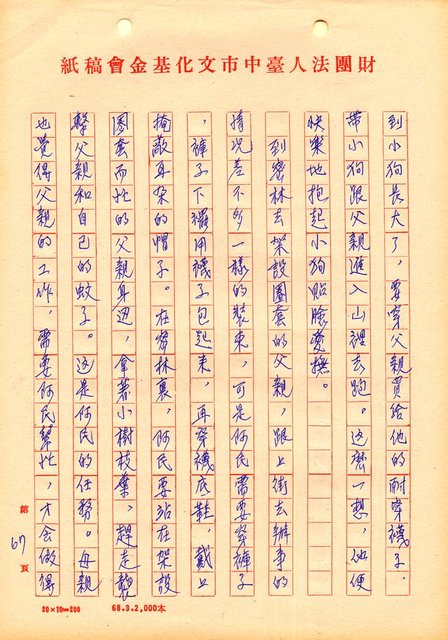 財團法人臺中市文化基金會稿紙
到小狗長大了，要穿父親買給他的耐穿襪子，
帶小狗跟父親進入山裡去跑。這麼一想，他便
快樂地抱起小狗貼臉愛撫。
到密林去架設圈套的父親，跟上街去辦事的
情況差不多一樣的裝束，可是阿民需要穿褲子
，褲子下襬用襪子包起來，再穿襪底鞋，戴上
掩蔽耳朵的帽子。在密林裏，阿民要站在架設
圈套而忙的父親身邊，拿著小樹枝葉，趕走襲
擊父親和自己的蚊子。這是阿民的任務。母親
也覺得父親的工作，需要阿民幫忙，才會做得
第67頁
20×10=200
68.3.2,000本